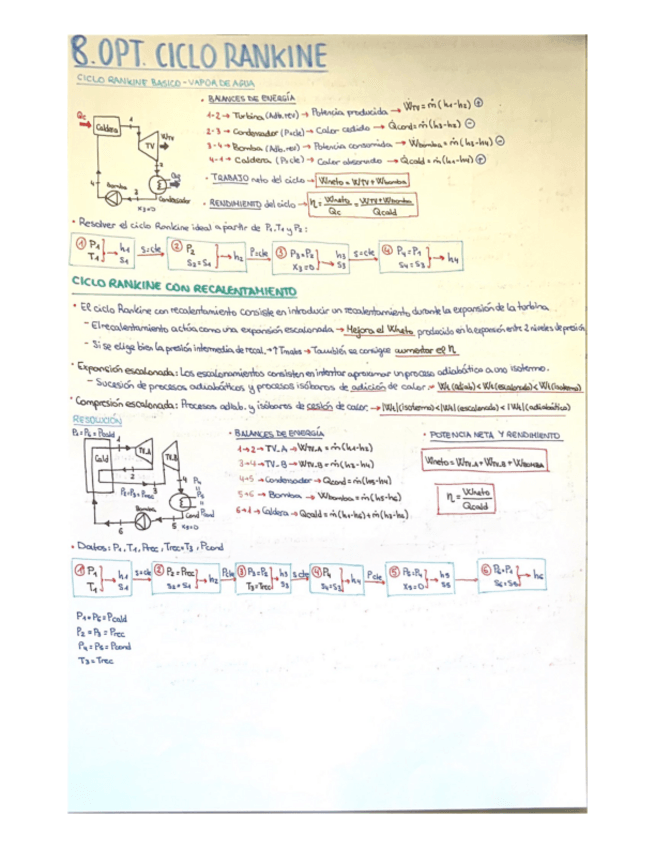 8. OPT. CICLO RANKINE
CICLO RANKINE BÁSICO - VAPOR DE AGUA
• BALANCES DE ENERGÍA
1-2 → Turbina (Adb. rev) → Potencia producida → Ẇtv = ṁ(h1-h2) ⊕
2-3 → Condensador (P=cte) → Calor cedido → Q̇cond = ṁ(h3-h2) ⊖
3-4 → Bomba (Adb. rev) → Potencia consumida → Ẇbomba = ṁ(h3-h4) ⊖
4-1 → Caldera (P=cte) → Calor absorbido → Q̇cald = ṁ(h1-h4) ⊕
Qc
Caldera
1
TV
WTV
2
Condensador
Bomba
3
4
X3=0
• TRABAJO neto del ciclo → Wneto = WTV + Wbomba
• RENDIMIENTO del ciclo → η = Wneto / Qc = WTV + Wbomba / Qcald
• Resolver el ciclo Rankine ideal a partir de P1, T1 y P2:
① P1 T1 } → h1 s1 s=cte → ② P2 s2=s1 } → h2 P=cte → ③ P3=P2 X3=0 } → h3 s3 s=cte → ④ P4=P1 s4=s3 } → h4
CICLO RANKINE CON RECALENTAMIENTO
• El ciclo Rankine con recalentamiento consiste en introducir un recalentamiento durante la expansión de la turbina.
- El recalentamiento actúa como una expansión escalonada → Mejora el Wneto producido en la expansión entre 2 niveles de presión
- Si se elige bien la presión intermedia de recal. → ↑ Tmabs → También se consigue aumentar el η
• Expansión escalonada: Los escalonamientos consisten en intentar aproximar un proceso adiabático a uno isotermo.
- Sucesión de procesos adiabáticos y procesos isóbaros de adición de calor: → Wt(adiab) < Wt(escalonado) < Wt(isotermo)
• Compresión escalonada: Procesos adiab. y isóbaros de cesión de calor → |Wt|(isotermo) < |Wt|(escalonado) < |Wt|(adiabático)
RESOLUCIÓN
P1=P6=Pcald
Cald
1
TV.A
TV.B
2
3
P2=P3=Prec
4
P4
=
P5
=
Pcond
Cond
Bomba
5
X5=0
6
• BALANCES DE ENERGÍA
1→2 → TV_A → WTV.A = ṁ(h1-h2)
3→4 → TV_B → WTV.B = ṁ(h3-h4)
4→5 → Condensador → Qcond = ṁ(h5-h4)
5→6 → Bomba → Wbomba = ṁ(h5-h6)
6→1 → Caldera → Qcald = ṁ(h1-h6) + ṁ(h3-h2)
• POTENCIA NETA Y RENDIMIENTO
Wneto = WTV.A + WTV.B + WBOMBA
η = Wneto / Qcald
• Datos: P1, T1, Prec, Trec=T3, Pcond
① P1 T1 } → h1 s1 s=cte → ② P2=Prec s2=s1 } → h2 P=cte → ③ P3=P2 T3=Trec } → h3 s3 s=cte → ④ P4 s4=s3 } → h4 P=cte → ⑤ P5=P4 X5=0 } → h5 s5 → ⑥ P6=P1 s6=s5 } → h6
P1=P6=Pcald
P2=P3=Prec
P4=P5=Pcond
T3=Trec